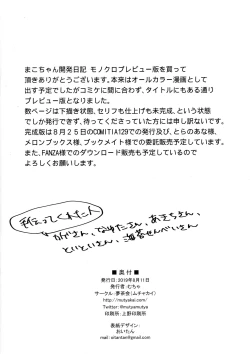 まこちゃん開発日記 モノクロプレビュー版を買って
頂きありがとうございます。本来はオールカラー漫画として
出す予定でしたがコミケに間に合わず、タイトルにもある通り
プレビュー版となりました。
数ページは下描き状態、セリフも仕上げも未完成、という状態
でしか発行できず、待ってくださっていた方には申し訳ないです。
完成版は８月２５日のCOMITIA129での発行及び、とらのあな様、
メロンブックス様、ブックメイト様での委託販売も予定しています。
また、FANZA様でのダウンロード販売も予定しているので
よろしくお願いします。
手伝ってくれた人
さん、なすたさん、あきちさん、
といといさん、海苔せんべいさん
■奥付■
発行日：2019年8月11日
発行者：むちゃ
サークル：夢茶会（ムチャカイ）
http://mutyakai.com/
Twitter: @mutyamutya
印刷所：上野印刷所
表紙デザイン：
おいたん
mail: oitantan@gmail.com